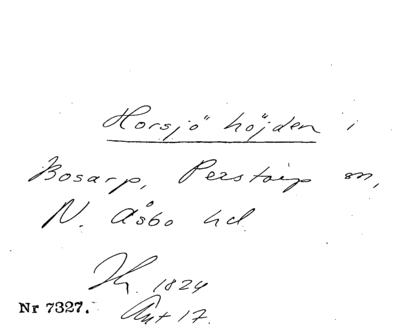 Horsjö höjden i
Bosarp, Perstorp sn,
N. Åsbo hd
1824
Nr 7327.
17.